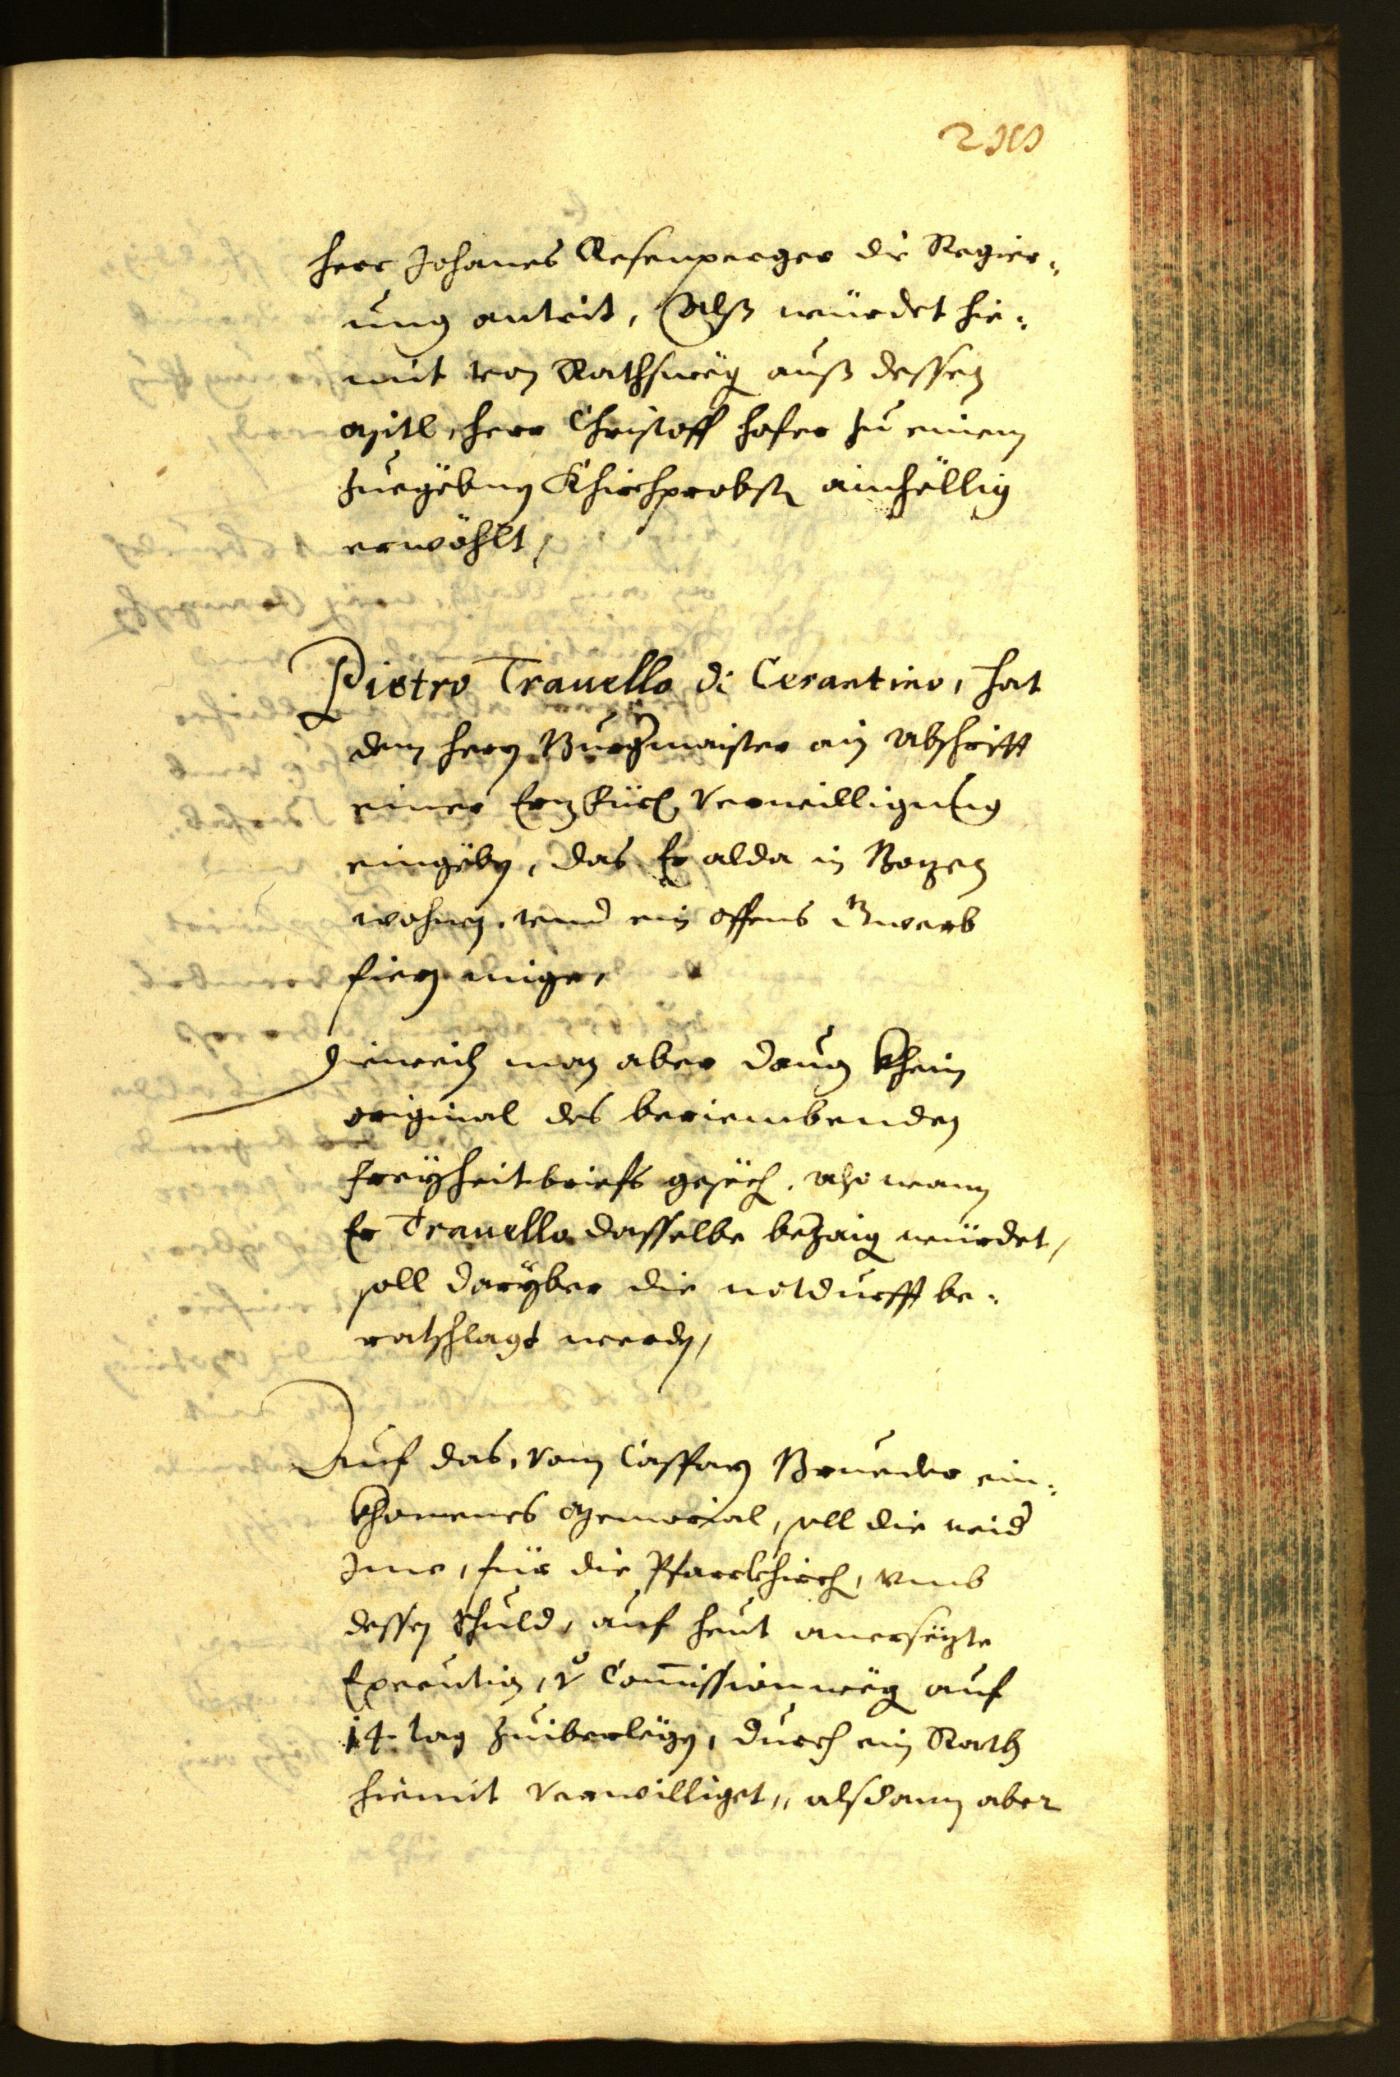 herr Johanes Rosenperger die Regier¬
ung antrit, Alß würdet hie¬
mit von Rathsweg auß dessen
mitl herr Christoff hofer zu einem
zuegebnen Khirchprobst ainhellig
erwöhlt,
Pietro Trauello di Cerantino, hat
dem herrn Burgermaister ain Abschrifft
einer Verwilligung
eingeben, das Er alda in Bozen
wohnen, vnd ein offens Gwerb
fieren mige,
dieweil man aber darum khein
original des beriembenden
freyheitbriefs gesech, also wann
Er Trauello dasselbe bezaig würdet,
soll daryber die notdurfft be¬
ratschlagt werden,
Auf das, vom Casparn Brueder ein¬
khomenes Memorial, soll die wid
Ime, für die Pfarrkhirch, vmb
dessen Schuld, auf heut anersezte
Execution, Commissionweg auf
14 tag zuiberlegen, durch ein Rath
hiemit verwilliget, alsdann aber